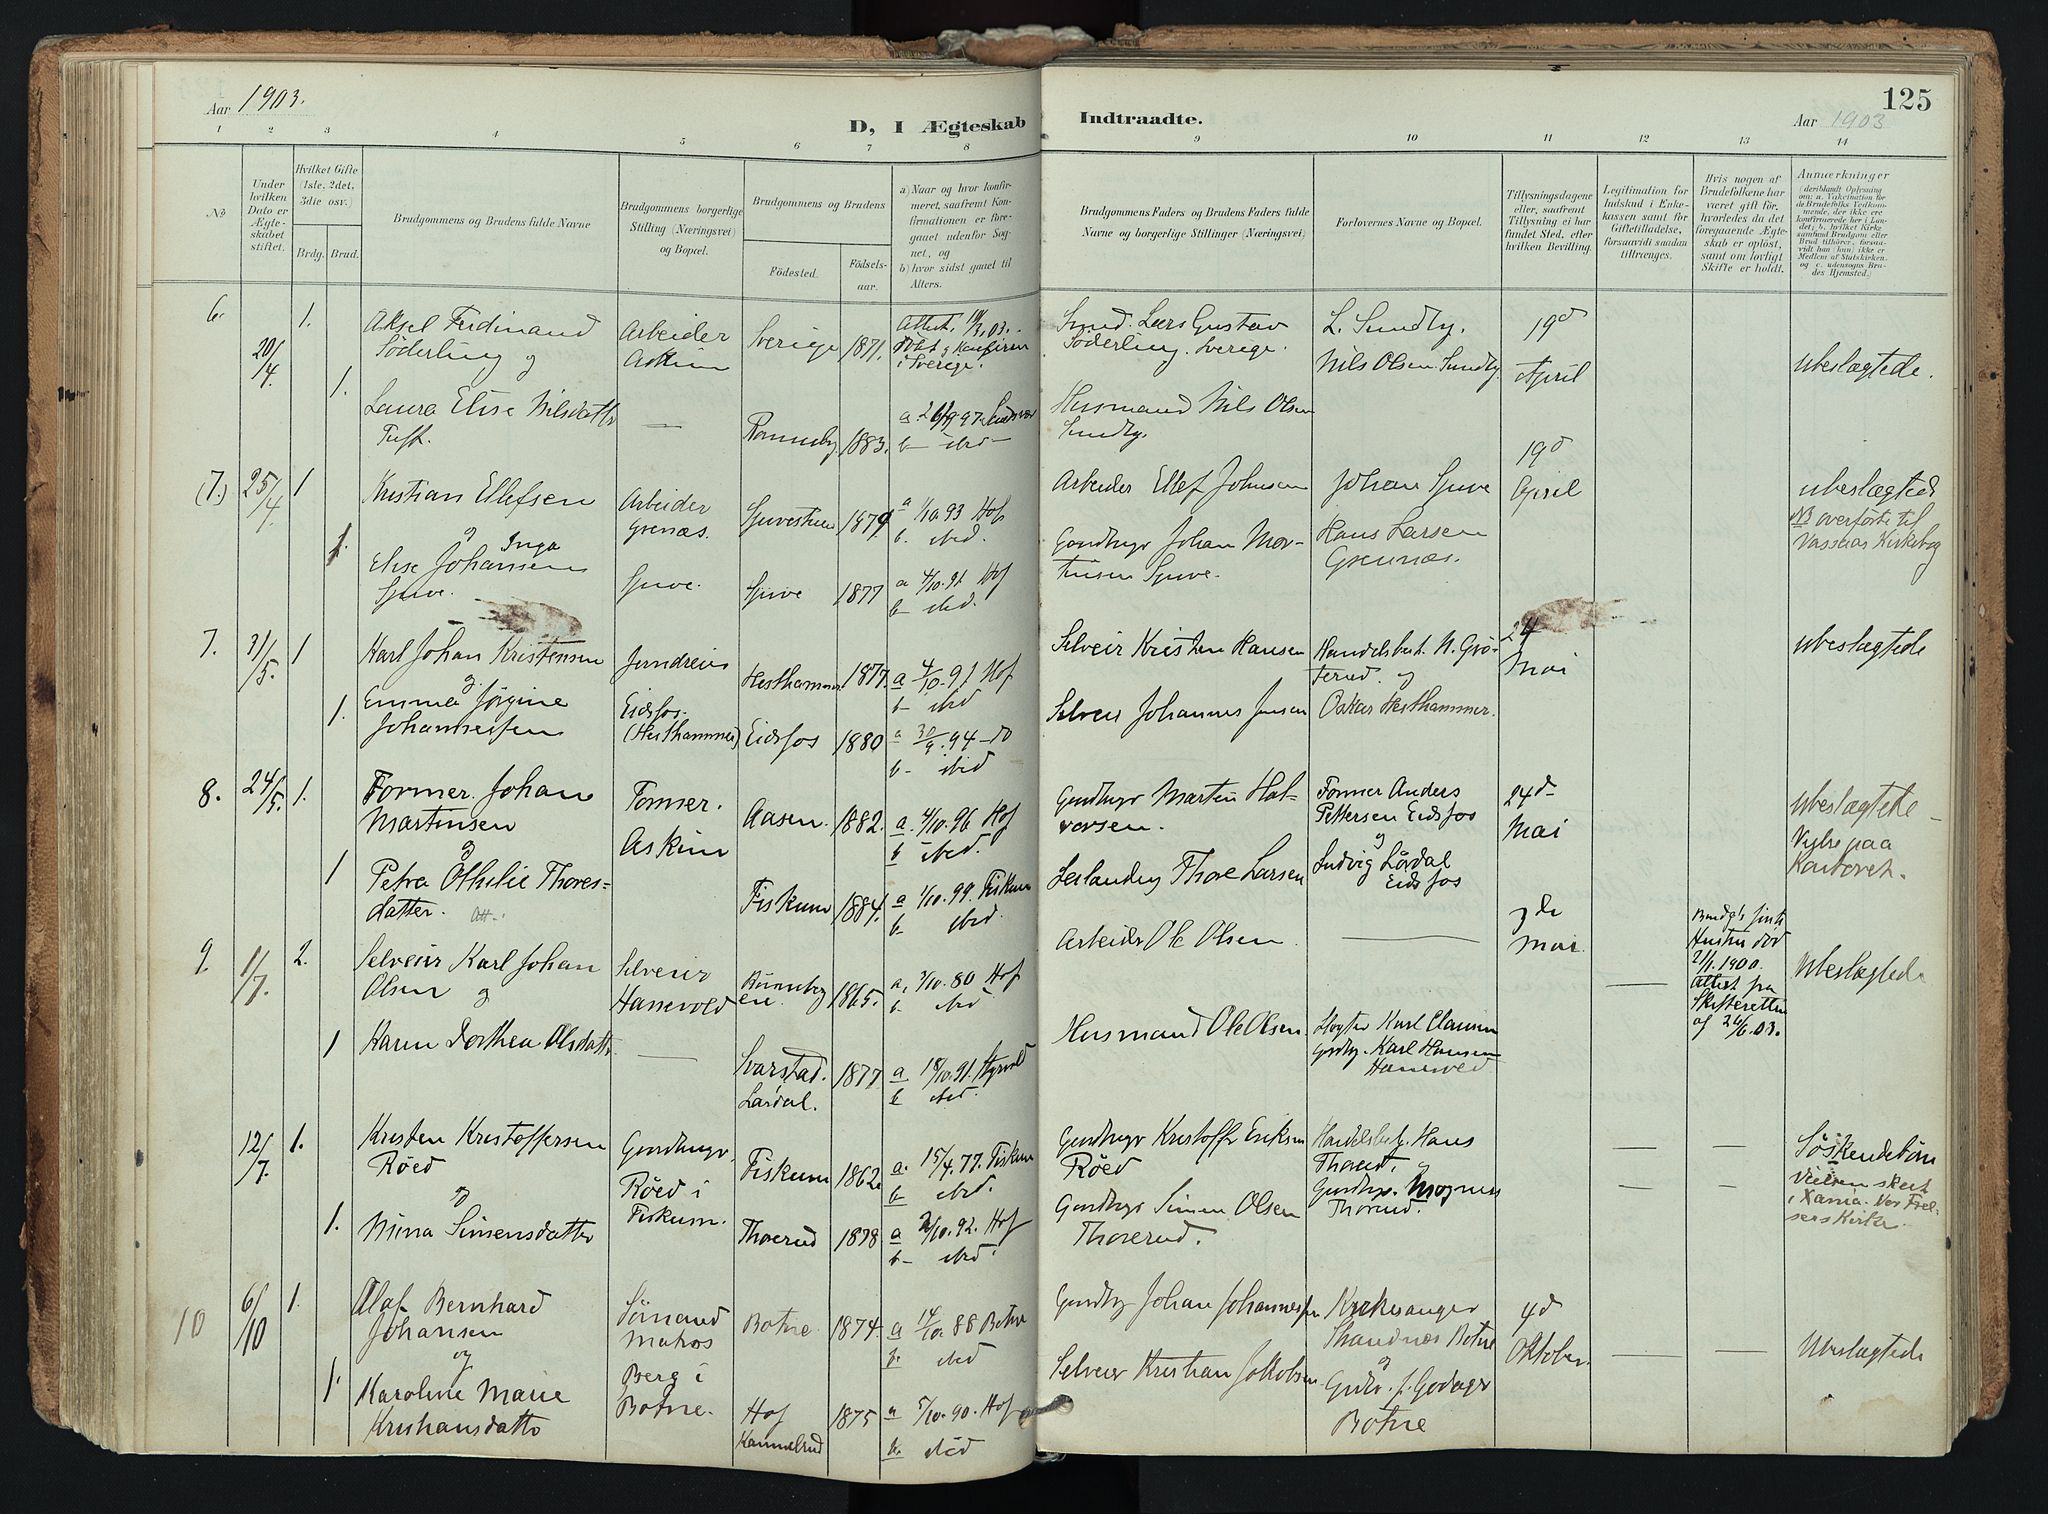 Aar 1903.
D, I Ægteskab
1 2 3 4 5 6 7 8
No
Under hvilken Dato er Ægteskabet stiftet.
Hvilket Gifte (1ste, 2det, 3die osv.)
Brdg. Brud.
Brudgommens og Brudens fulde Navne
Brudgommens borgerlige Stilling (Næringsvei) og Bopæl.
Brudgommens og Brudens
Födested.
Födsels-aar.
a) Naar og hvor konfirmeret, saafremt Konfirmationen er foregaaet udenfor Sognet, og
b) hvor sidst gaaet til Alters.
6. 20/4 1.
Aksel Ferdinand
Söderling og
Arbeider
Askim
Sverige 1871.
i Sverige.
1.
Laura Elise Nilsdatter
1883.
b- ibid-
(7.) 25/4 1
Kristian Ellefsen
og
Arbeider
Grenæs.
a 1/10 93 Hof
b. ibid.
1.
Elise Inga
Johansen
1877
a 4/10. 91 Hof
b- ibid.
7. 31/5. 1
Karl Johan Kristensen
og
Jerndreier
Eidsfos.
(Hesthammer)
Hesthammer 1877.
a 4/10. 91 Hof
b- ibid
1.
Emma Jørgine
Johannesen
Eidsfos 1880
a 30/9. 94 - do
b- ibid
8. 24/5. 1.
Former. Johan
Martinsen
og
Former.
Askim
Aasen. 1882.
a. 4/10. 96 Hof
b ibid.
1
Petra Othilie Thores-
datter.
Fiskum 1884.
a 1/10. 99. Fiskum
b. ibid.
9. 1/7. 2.
Selveier Karl Johan
Olsen og
Selveier
Hanevold
1865.
a, 3/10. 80 Hof
b. ibid
1
Karen Dorthea Olsdatter
Svarstad.
Lardal.
1877
b ibid.
12/7. 1.
Kristen Kristoffersen
Røed
og
Gaardbruger,
Røed i
Fiskum.
Fiskum 1862
a. 15/4. 77. Fiskum
b- ibid.
1.
Mina Simensdatter
Thorerud 1878
a 2/10. 92. Hof
b- ibid.
10 6/10 1.
Olaf Bernhard
Johansen
og
Sömand
Matros
Berg i
Botne.
Botne. 1874
a 14/10 88 Botne
b. ibid
1
Karoline Marie
Kristiansdatter
Hof
1875
a 5/10. 90. Hof
b. ibid
125
Indtraadte.
Aar 1903
9 10 11 12 13 14
Brudgommens Faders og Brudens Faders fulde Navne og borgerlige Stillinger (Næringsvei)
Forlovernes Navne og Bopæl.
Tillysningsdagene eller, saafremt Tillysning ei har fundet Sted, efter hvilken Bevilling.
Legitimation for Indskud i Enkekassen samt for Giftetilladelse, forsaavidt saadan tiltrænges.
Hvis nogen af Brudefolkene har været gift før, hvorledes da det foregaaende Ægteskab er oplöst, samt om lovligt Skifte er holdt.
Anmærkninger
(deriblandt Oplysning om: a. Vaccination for de Brudefolks Vedkommende, der ikke ere konfirmerede her i Landet; b. hvilket Kirkesamfund Brudgom eller Brud tilhörer, forsaavidt han (hun) ikke er Medlem af Statskirken, og c. udensogns Brudes Hjemsted.)
Smed. Lars Gustav
Söderling. Sverige.
Husmand Nils Olsen
Sundby.
L. Sundby.
Nils Olsen Sundby.
19d
April
ubeslægtede.
Arbeider Ellef Johnsen
Gaardbrgr Johan Mor-
tinsen
Johan
Hans Larsen
Grennæs.
19d
April
ubeslægtede
NB overförte til
Vassaas Kirkebog
Selveier Kristen Hansen
Selveier Johannes Jensen
Oskar Hesthammer.
24
Mai
ubeslægtede
Gaardbrgr Martin Hal-
vorsen.
Thore Larsen
Former Anders
Pettersen Eidsfos
og
Ludvig Lørdal
Eidsfos
24d
Mai
ubeslægtede
Vylse paa
Kontoret.
Arbeider Ole Olsen.
Husmand Ole Olsen
Karl Clausen
Gaardbr. Karl Hansen
Hanevold
Mai
Hustru död
2/1. 1900.
Attest fra
Skifteretten
af 26/6. 03.
Ubeslægtede
Gaardbrgr Kristoffer Eriksen
Røed
Gaardbrgr Simen Olsen
Thorerud.
Hans
Thorerud.
og
Gaardbr. Magnus
Thorerud.
Söskendebörn
Vielsen skeet
i Xania. Vor Frel-
sers Kirke.
Gaardbr Johan Johannesen
Selveier Kristian Jakobsen
Kirkesanger
Strandnæs Botne
og
Botne
4d
Oktober.
Ubeslægtede